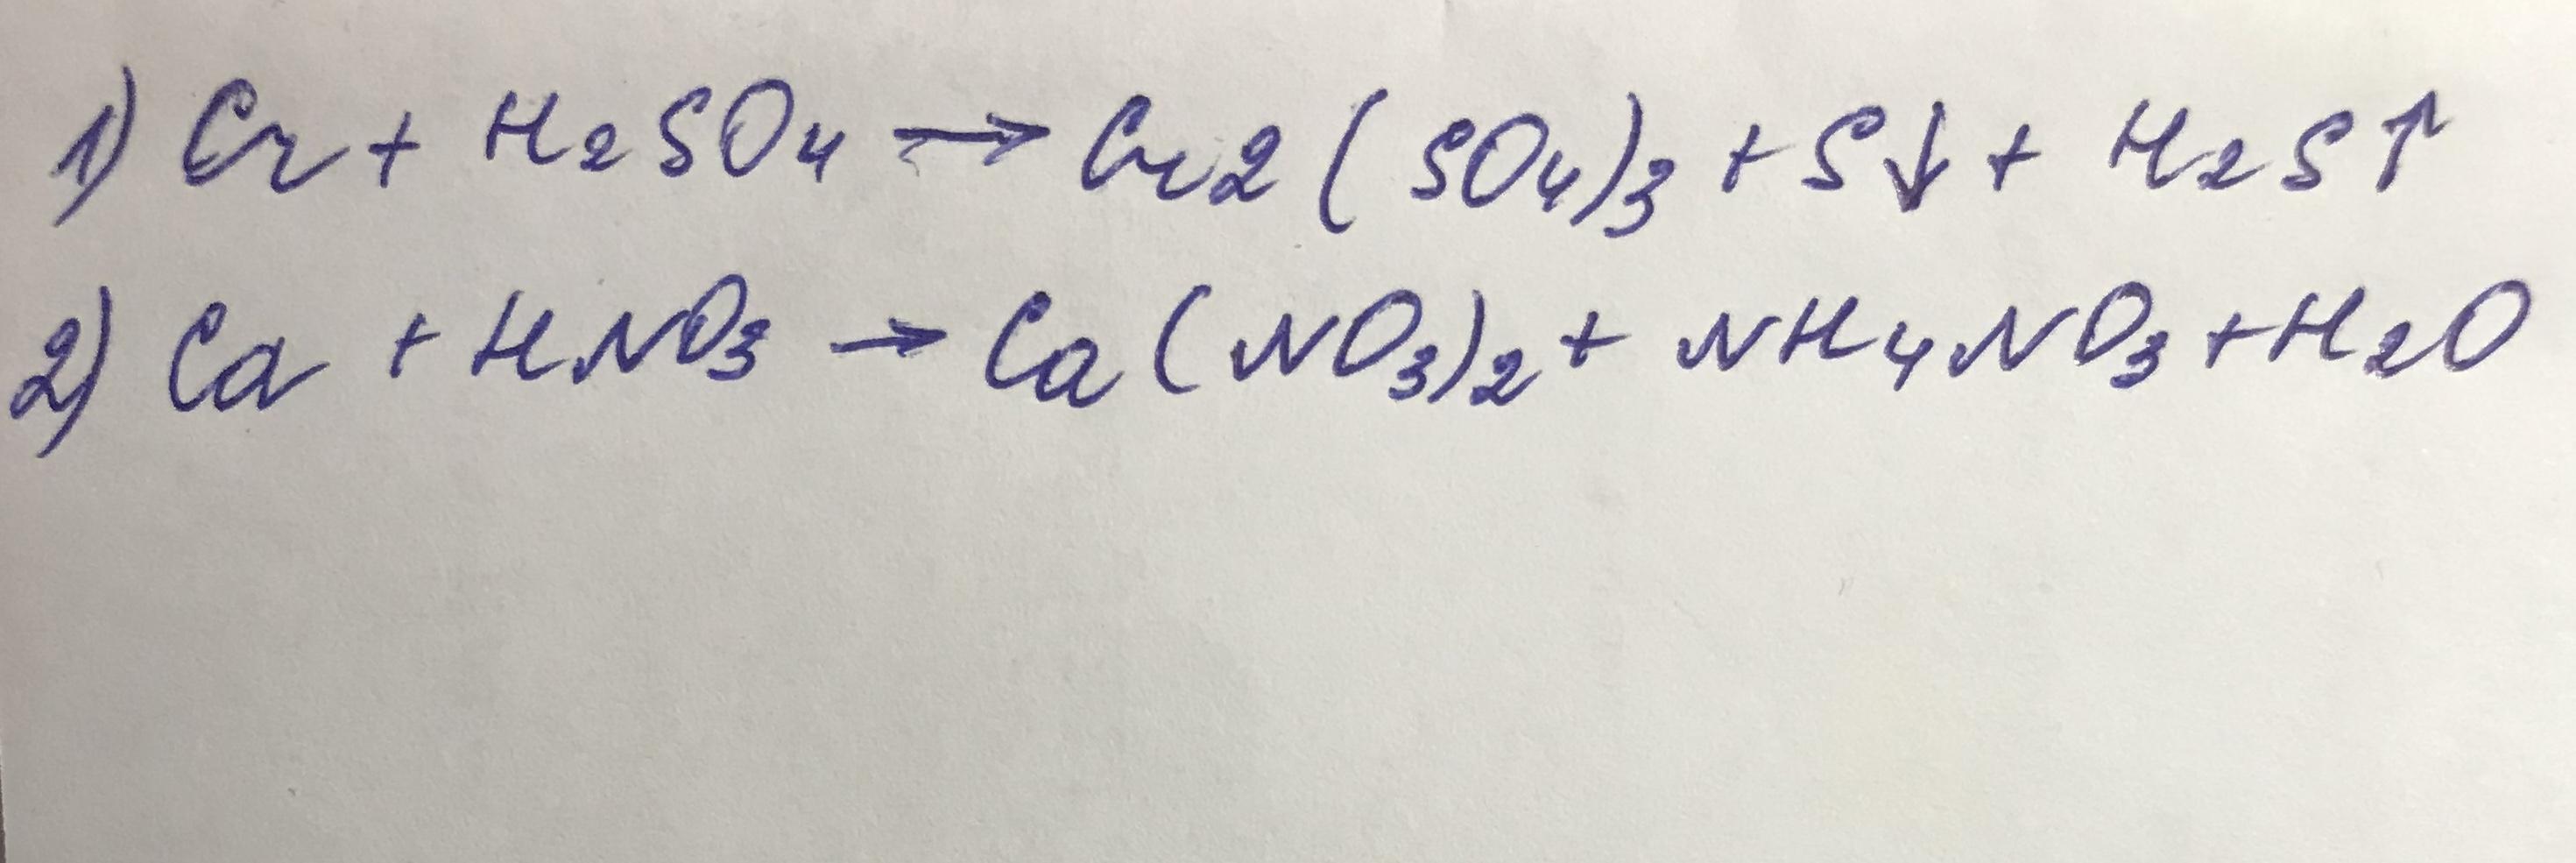 1) Cr + H2SO4 → Cr2(SO4)3 + S↓ + H2S↑
2) Ca + HNO3 → Ca(NO3)2 + NH4NO3 + H2O